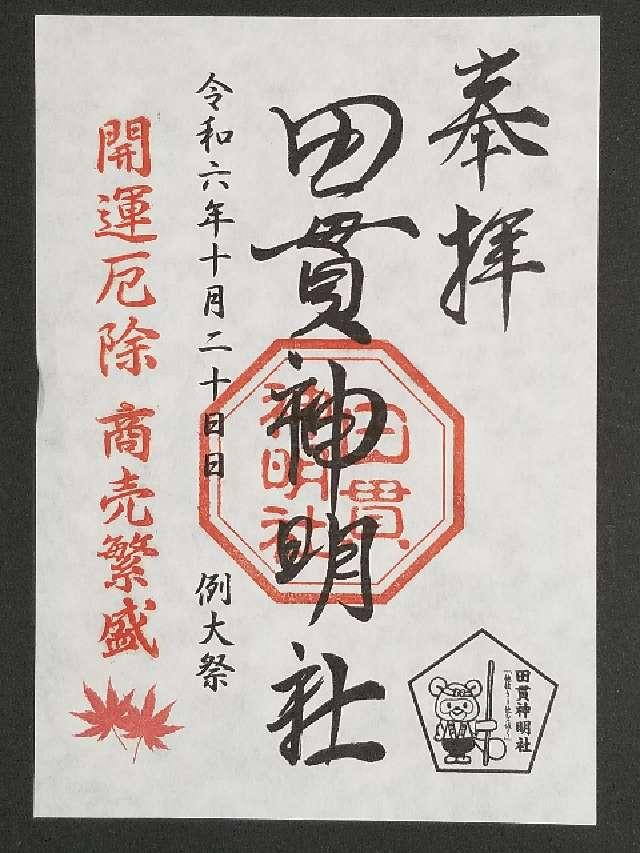 奉拝
田貫神明社
田貫
神明社
令和六年十月二十日日 例大祭
開運厄除 商売繁盛
田貫神明社